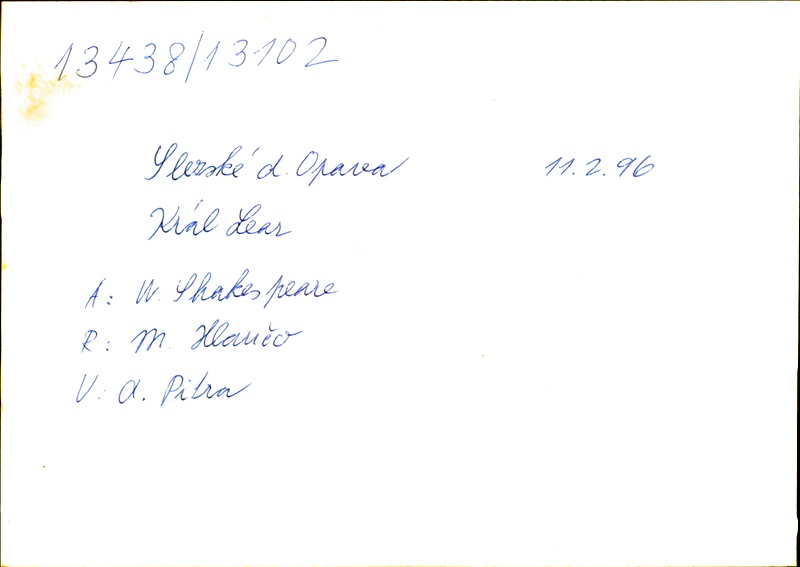 13438/13102
Slezské d. Opava 11.2.96
Král Lear
A: W. Shakespeare
R: M.
V: d. Pitra